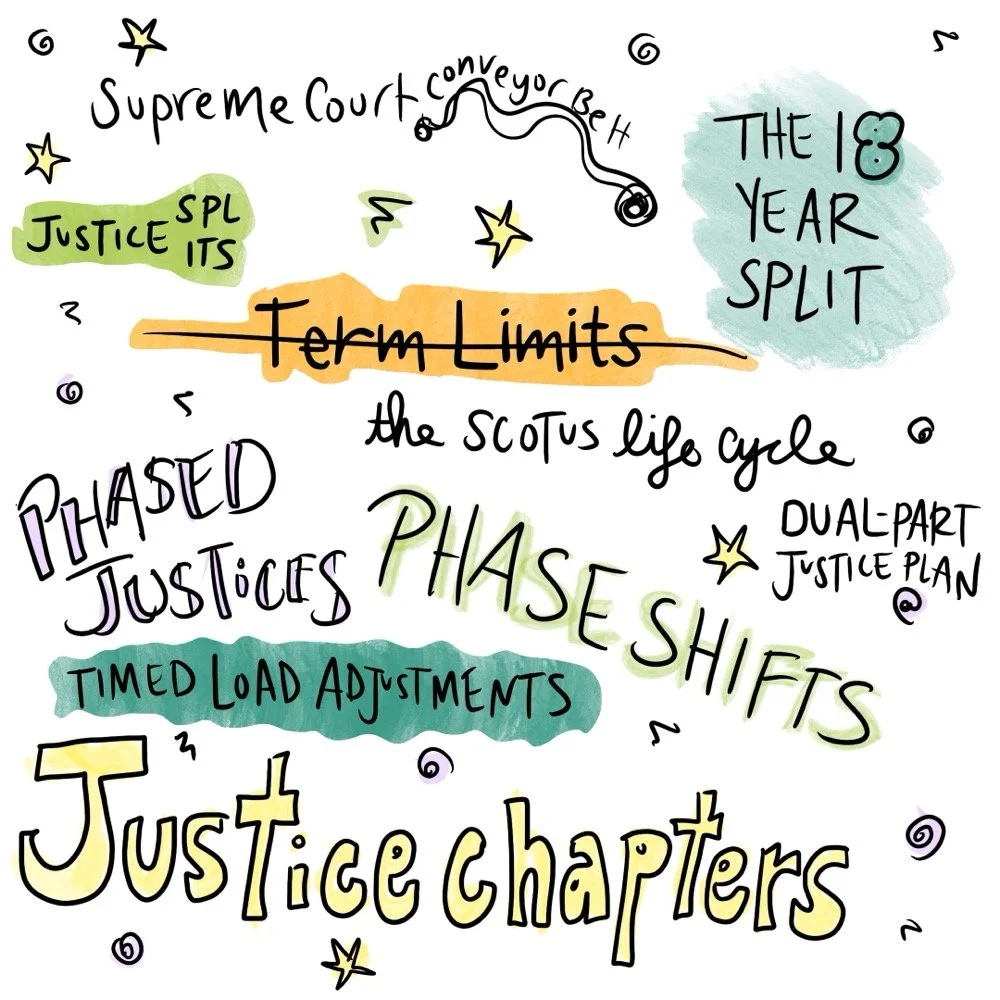 Supreme Court Conveyor Belt
THE 18
YEAR
SPLIT
JUSTICE SPL
ITS
Term Limits
the SCOTUS life cycle
PHASED
JUSTICES
PHASE SHIFTS
DUAL-PART
JUSTICE PLAN
TIMED LOAD ADJUSTMENTS
Justice chapters